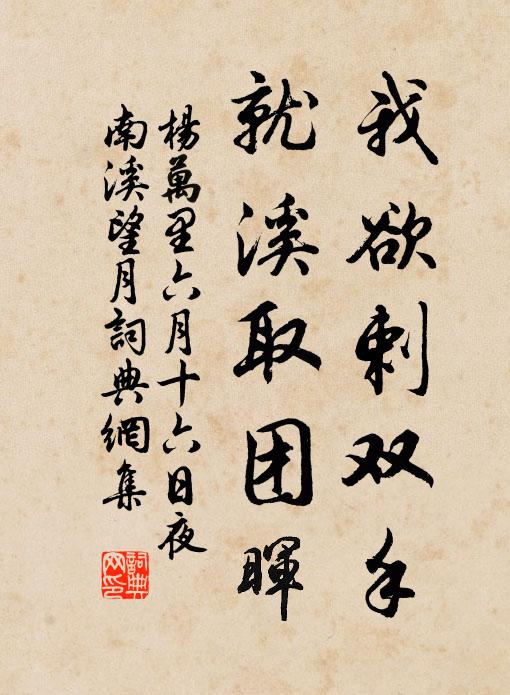 我欲刺双手
就溪取团暉
楊萬里六月十六日夜
南溪望月詞典網集
詞典网印